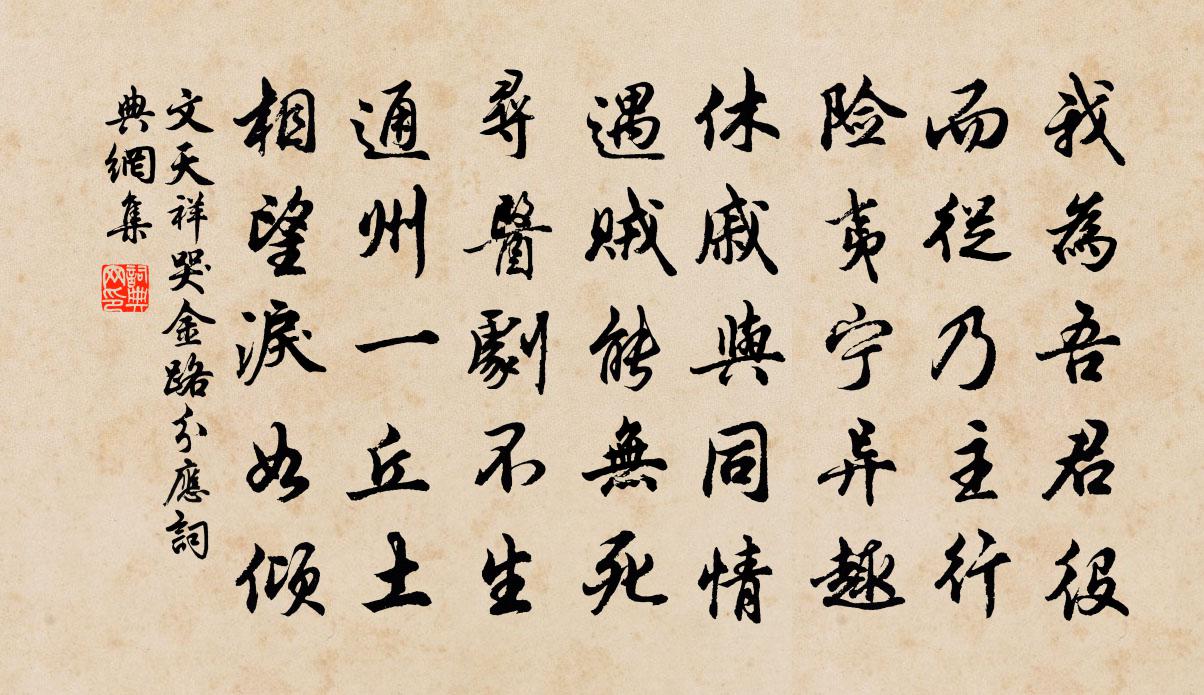 我為吾君役
而從乃主行
险夷宁异趣
休戚與同情
遇賊能無死
尋醫劇不生
通州一丘土
相望淚如傾
文天祥哭金路分應詞
典網集
詞典网印